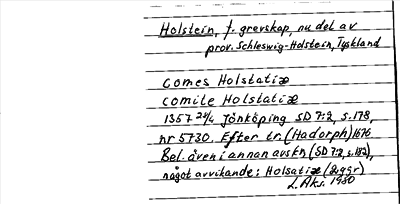 Holstein, f. grevskap, nu del av
prov. Schleswig-Holstein, Tyskland
comes Holstatiæ
comite Holstatiæ
1357 24/4 Jönköping SD 7:2, s. 178,
nr 5730. Efter tr. (Hadorph) 1676
Bel. även i annan avskr. (SD 7:2, s. 182),
något avvikande: Holsatiæ (2 ggr)
L. Aks. 1980